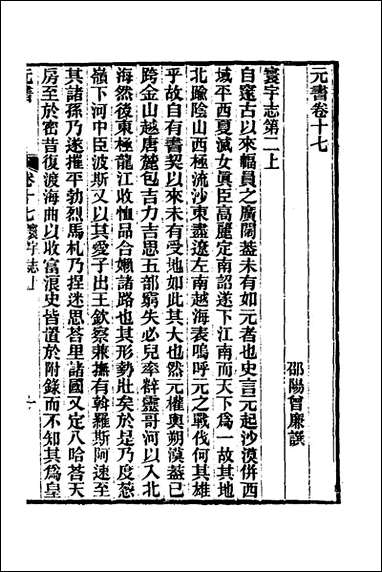 元書卷十七
邵陽曾廉譔
寰宇志第二上
自邃古以來幅員之廣闊葢未有如元者也史言元起沙漠併西
域平西夏滅女眞臣高麗定南詔遂下江南而天下爲一故其地
北踰陰山西極流沙東盡遼左南越海表嗚呼元之戰伐何其雄
乎故自有書契以來未有受地如此其大也然元權輿朔漠葢已
跨金山越唐麓包吉力吉思五部窮失必兒牽辥靈哥河以入北
海然後東極龍江收恤品合嬾諸路也其形勢壯矣於是乃度蔥
嶺下河中臣波斯又以其愛子出王欽察兼撫有斡羅斯阿速至
其諸孫乃遂摧平勃烈馬札乃捏迷思荅里諸國又定八哈荅天
房至於密昔復渡海曲以收富浪史皆置於附錄而不知其爲皇
元書
卷十七 寰宇志上
一